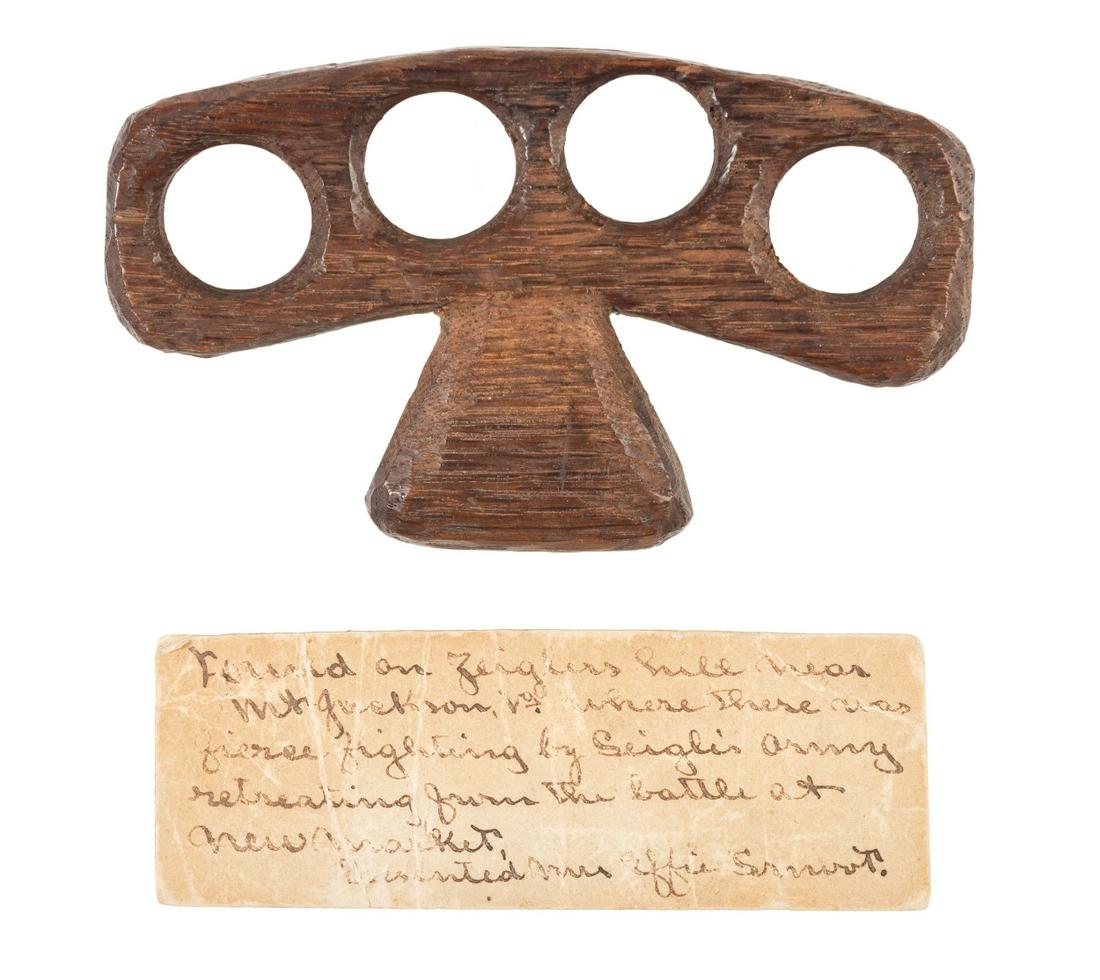 Found on Zeiglers hill near
Mt Jackson, Va where there was
fierce fighting by Seigli's army
retreating from the battle at
New Market,
Presented Mrs Effie Smoot.